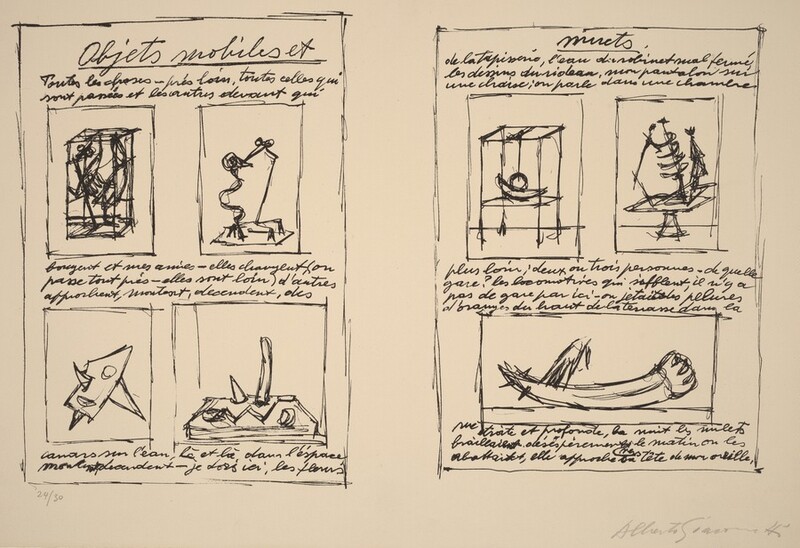 Objets mobiles et
Toutes les choses – près loin, toutes celles qui
sont passées et les autres devant qui
bougent et mes amies – elles changent (on
passe tout près – elles sont loin) d'autres
approchent, montent, descendent, des
canards sur l'eau, là et là dans l'espace
descendent – je dors ici, les fleurs
24/30
muets
de la tapisserie, l'eau du robinet mal fermé,
les dessins du rideau, mon pantalon sur
une chaise, on parle dans une chambre
plus loin; deux ou trois personnes – de quelle
gare? les locomotives qui sifflent, il n'y a
pas de gare par ici – on jetait des pelures
d'oranges du haut de la terrasse dans la
rue étroite et profonde, la nuit les mulets
braillaient désespérément, le matin on les
abattait, elle approche sa tête de mon oreille,
Alberto Giacometti